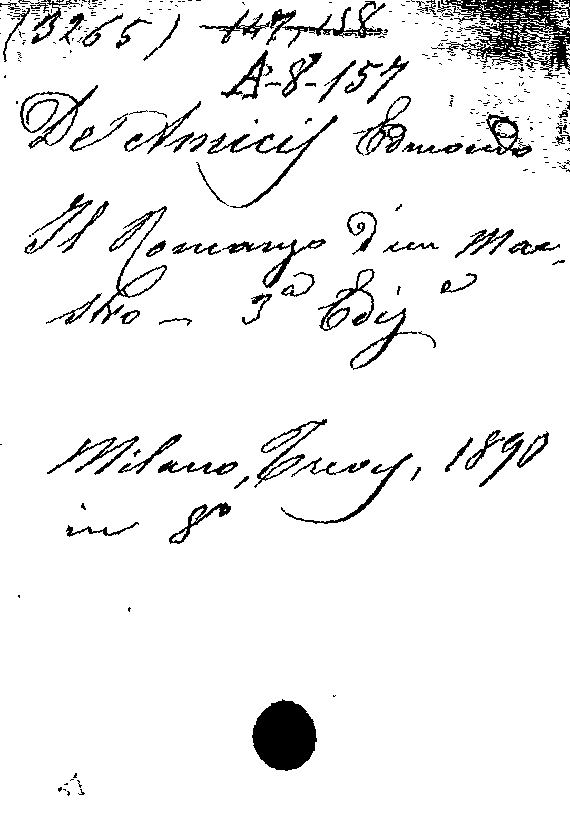 (3265) 147, 158
A-8-157
De Amicis Edmondo
Il Romanzo d'un Mae-
stro - 3ª Edizᵉ
Milano, Treves, 1890
in 8º